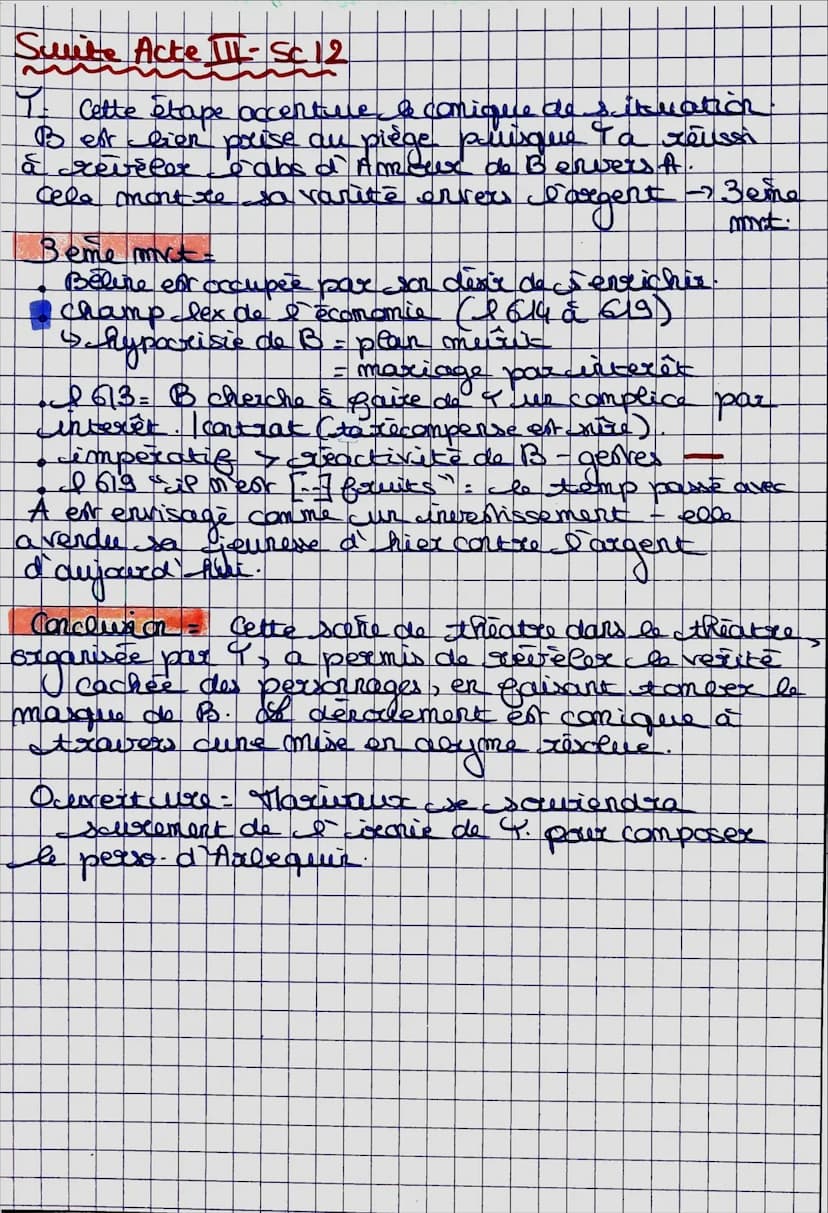 Suite Acte III - Sc 12
T: Cette étape accentue le comique de situation.
B est bien prise au piège puisque T a réussi
à révéler l'abs d'Amour de B envers A.
Cela montre sa vanité envers l'argent → 3ème
mvt.
3ème mvt =
. Béline est occupée par son désir de s'enrichir.
. champ lex de l'économie (l 614 à 619)
↳ hypocrisie de B = plan
= mariage par intérêt
. l 613 = B cherche à faire de T un complice par
intérêt. / contrat (ta récompense est sûre).
. impératif > réactivité de B - gestes —
. l 619 "il m'est [...] fruits" : le temp passé avec
A est envisagé comme un investissement - elle
a vendu sa jeunesse d'hier contre l'argent
d'aujourd'hui.
Conclusion = Cette scène de théâtre dans le théâtre,
organisée par T, a permis de révéler la vérité
cachée des personnages, en faisant tomber le
masque de B. Le déroulement est comique à
travers d'une mise en
Ouverture = Marivaux se souviendra
surement de l'ironie de T. pour composer
le perso. d'Arlequin.